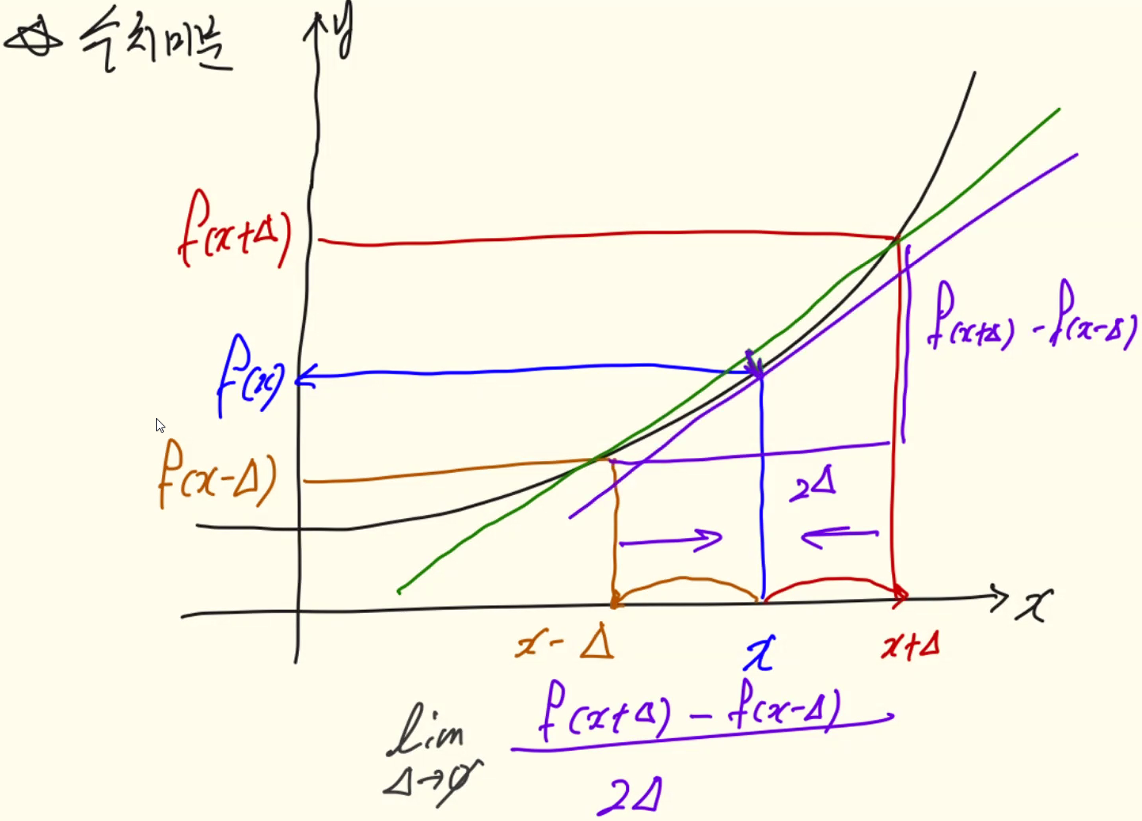 ☆ 수치미분
y
f(x+Δ)
f(x+Δ) - f(x-Δ)
f(x)
f(x-Δ)
2Δ
x
x-Δ
x
x+Δ
lim Δ→0
f(x+Δ) - f(x-Δ)
2Δ